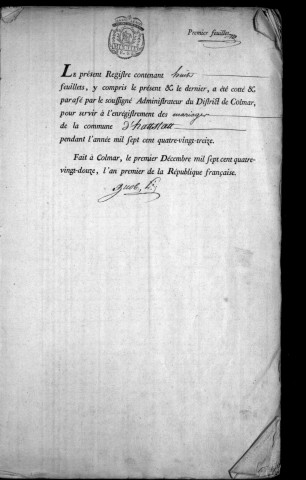 Premier feuillet
Le présent Registre contenant huit
feuillets, y compris le présent & le dernier, a été cotté &
parafé par le soussigné Administrateur du District de Colmar,
pour servir à l'enrégistrement des mariages
de la commune d'hattstatt
pendant l'année mil sept cent quatre-vingt-treize.
Fait à Colmar, le premier Décembre mil sept cent quatre-
vingt-douze, l'an premier de la République françaíse.